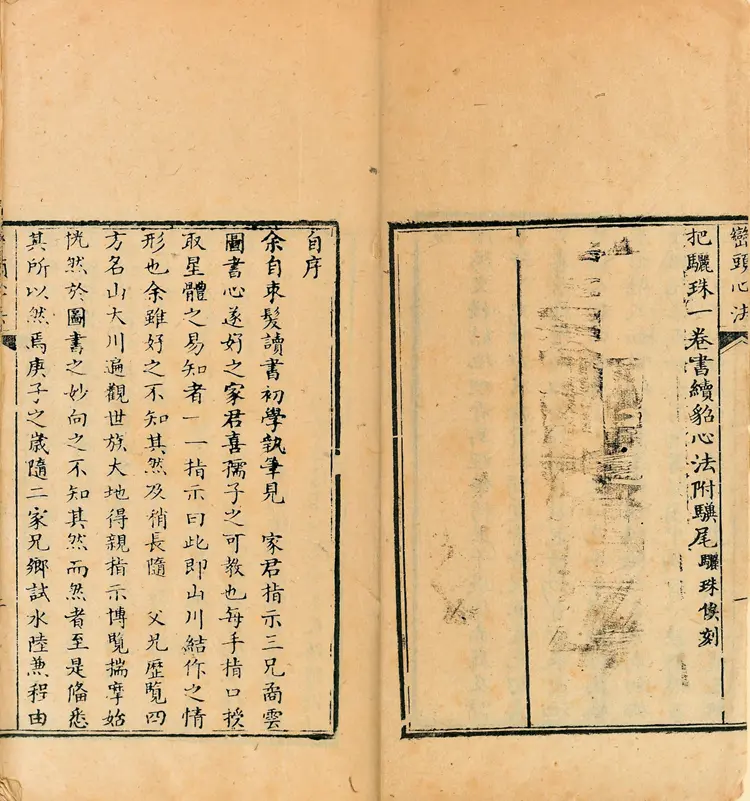 巒頭心法
把驪珠一卷書續貂心法附驥尾驪珠俟刻
自序
余自束髮讀書初學執筆見　家君指示三兄喬雲
圖書心遂好之家君喜孺子之可教也每手指口授
取星體之易知者一一指示曰此即山川結作之情
形也余雖好之不知其然及稍長隨　父兄歷覽四
方名山大川遍觀世族大地得親指示博覽揣摩始
恍然於圖書之妙向之不知其然而然者至是偹悉
其所以然焉庚子之歲隨二家兄鄉試水陸蒹程由